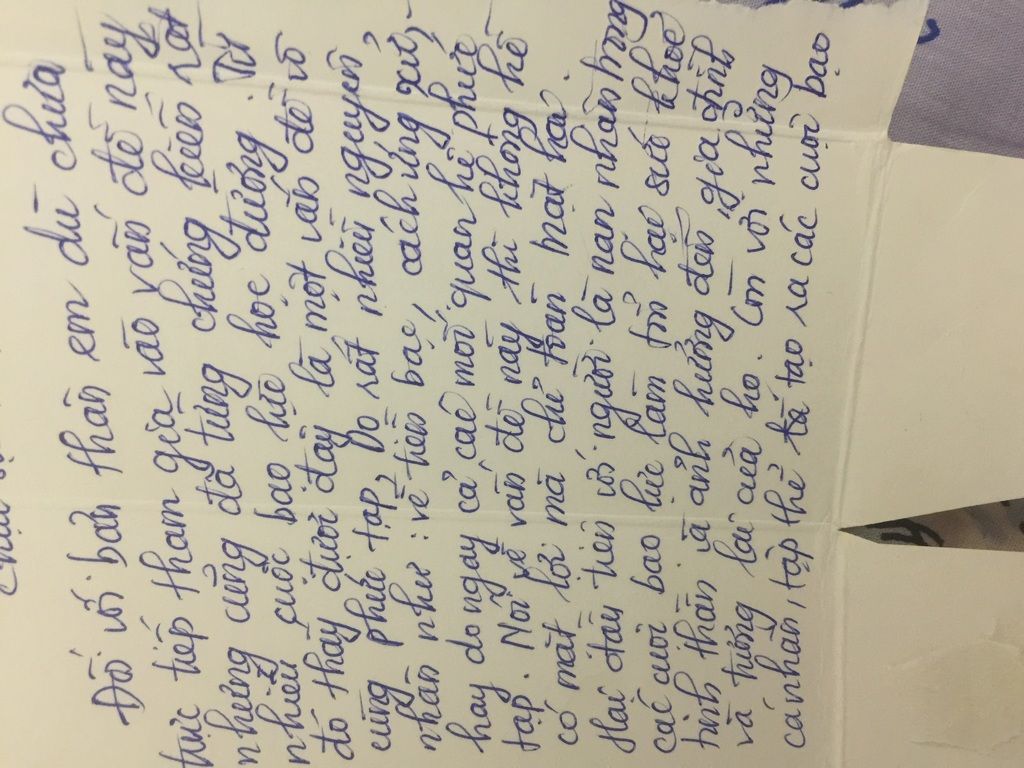 Đối với bản thân em dù chưa
thức tiếp tham gia vào vấn đề này
nhưng cũng đã từng chứng kiến rất
nhiều cuộc bạo lực học đường. Từ
đó thấy được đây là một vấn đề vô
cùng phức tạp, Do rất nhiều nguyên
nhân như: về tiền bạc, cách ứng xử,
hay do ngay cả các mối quan hệ phức
tạp. Nói về vấn đề này thì không hề
có mặt lợi mà chỉ toàn mặt hại.
Hại đầu tiên với người là nạn nhân trong
các cuộc bạo lực làm tổn hao sức khoẻ
tinh thần và ảnh hưởng đến gia đình
và tương lai của họ. Còn với những
cá nhân, tập thể tạo ra các cuộc bạo